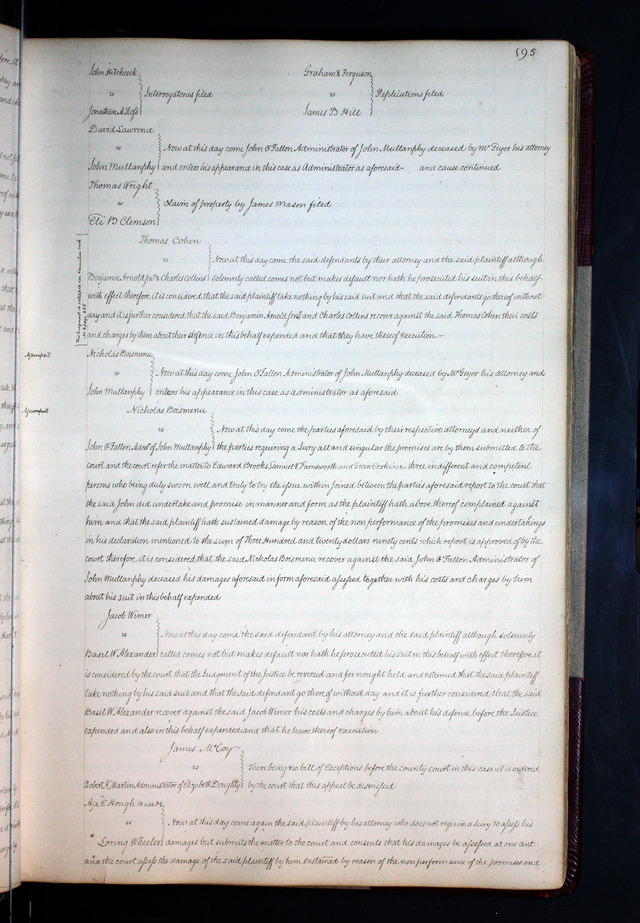 195
John Hitchcock
vs Interrogatories filed
Jonathan A Ross
Graham & Ferguson
vs Replications filed
James B Hill
David Lawrence
vs Now at this day come John O'Fallon Administrator of John Mullanphy deceased by Mr Geyer his attorney
John Mullanphy and enter his appearance in this case as Administrator as aforesaid - and cause continued
Thomas Wright
vs Claim of property by James Mason filed
Eli B Clemson
Thomas Cohen
vs Now at this day come the said defendants by their attorney and the said plaintiff although
Benjamin Arnold & Charles Collins solemnly called comes not but makes default nor hath he prosecuted his suit in this behalf
with effect therefore it is considered that the said plaintiff take nothing by his said suit and that the said defendants go thereof without
day and it is further considered that the said Benjamin Arnold and Charles Collins recover against the said Thomas Cohen their costs
and charges by them about their defence in this behalf expended and that they have thereof execution -
Assumpsit
Nicholas Boismenu
vs Now at this day come John O'Fallon Administrator of John Mullanphy deceased by Mr Geyer his attorney and
John Mullanphy enters his appearance in this case as administrator as aforesaid
Assumpsit
Nicholas Boismenu
vs Now at this day come the parties aforesaid by their respective attorneys and neither of
John O'Fallon Admr of John Mullanphy the parties requiring a Jury all and singular the premises are by them submitted to the
court and the court refer the matter to Edward Brooks Samuel Farnsworth and Erskine three indifferent and competent
persons who being duly sworn well and truly to try the issue within joined between the parties aforesaid report to the court that
the said John did undertake and promise in manner and form as the plaintiff hath above thereof complained against
him and that the said plaintiff hath sustained damage by reason of the non performance of the promises and undertakings
in his declaration mentioned to the sum of Three Hundred and twenty dollars ninety cents which report is approved of by the
court therefore it is considered that the said Nicholas Boismenu recover against the said John O'Fallon Administrator of
John Mullanphy deceased his damages aforesaid in form aforesaid assessed together with his costs and charges by him
about his suit in this behalf expended
Jacob Wimer
vs Now at this day come the said defendant by his attorney and the said plaintiff although solemnly
Basil W. Alexander called comes not but makes default nor hath he prosecuted his suit in this behalf with effect therefore it
is considered by the court that the Judgment of the Justice be reversed and for nought held and esteemed that the said plaintiff
take nothing by his said suit and that the said defendant go thereof without day and it is further considered that the said
Basil W. Alexander recover against the said Jacob Wimer his costs and charges by him about his defence before the Justice
expended and also in this behalf expended and that he have thereof execution
James McCoy
vs There being no bill of Exceptions before the county court in this case it is ordered
Robert Martin Administrator of Elizabeth Doughty by the court that this appeal be dismissed
Asa E Hough
vs Now at this day come again the said plaintiff by his attorney who does not require a Jury to assess his
Loring Wheeler damages but submits the matter to the court and consents that his damages be assessed at one cent
and the court assess the damage of the said plaintiff by him sustained by reason of the non performance of the promises and